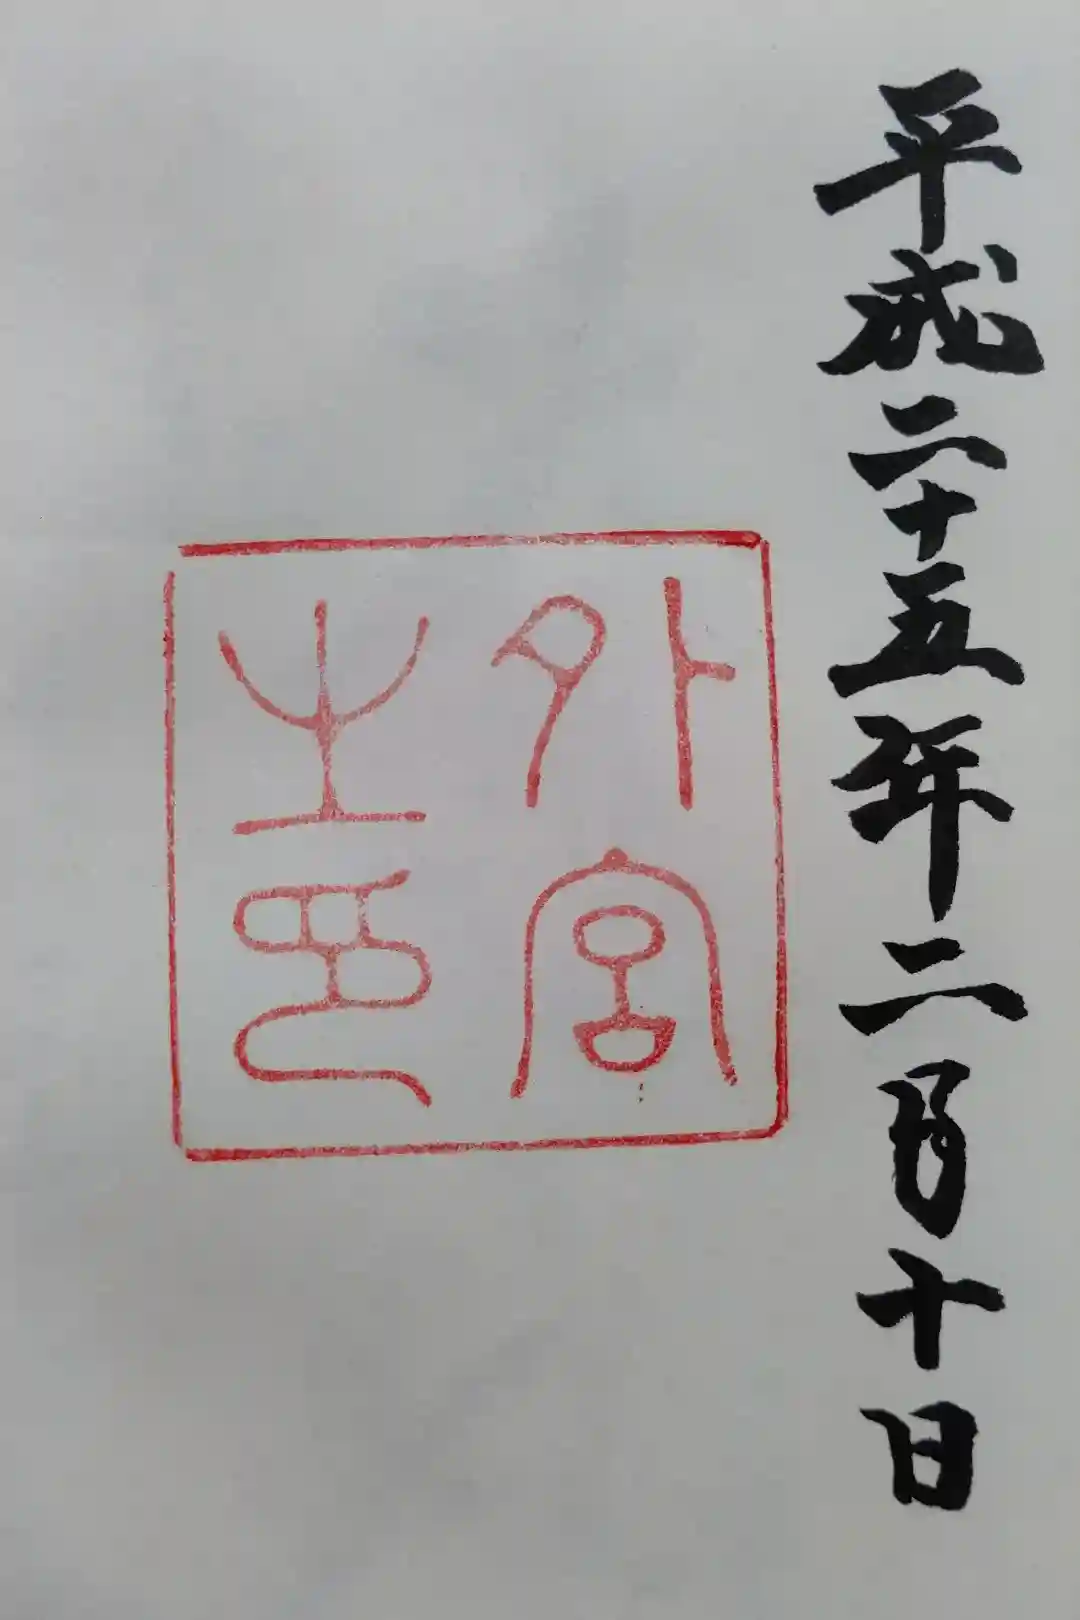 平成二十五年二月十日
外宮
之印